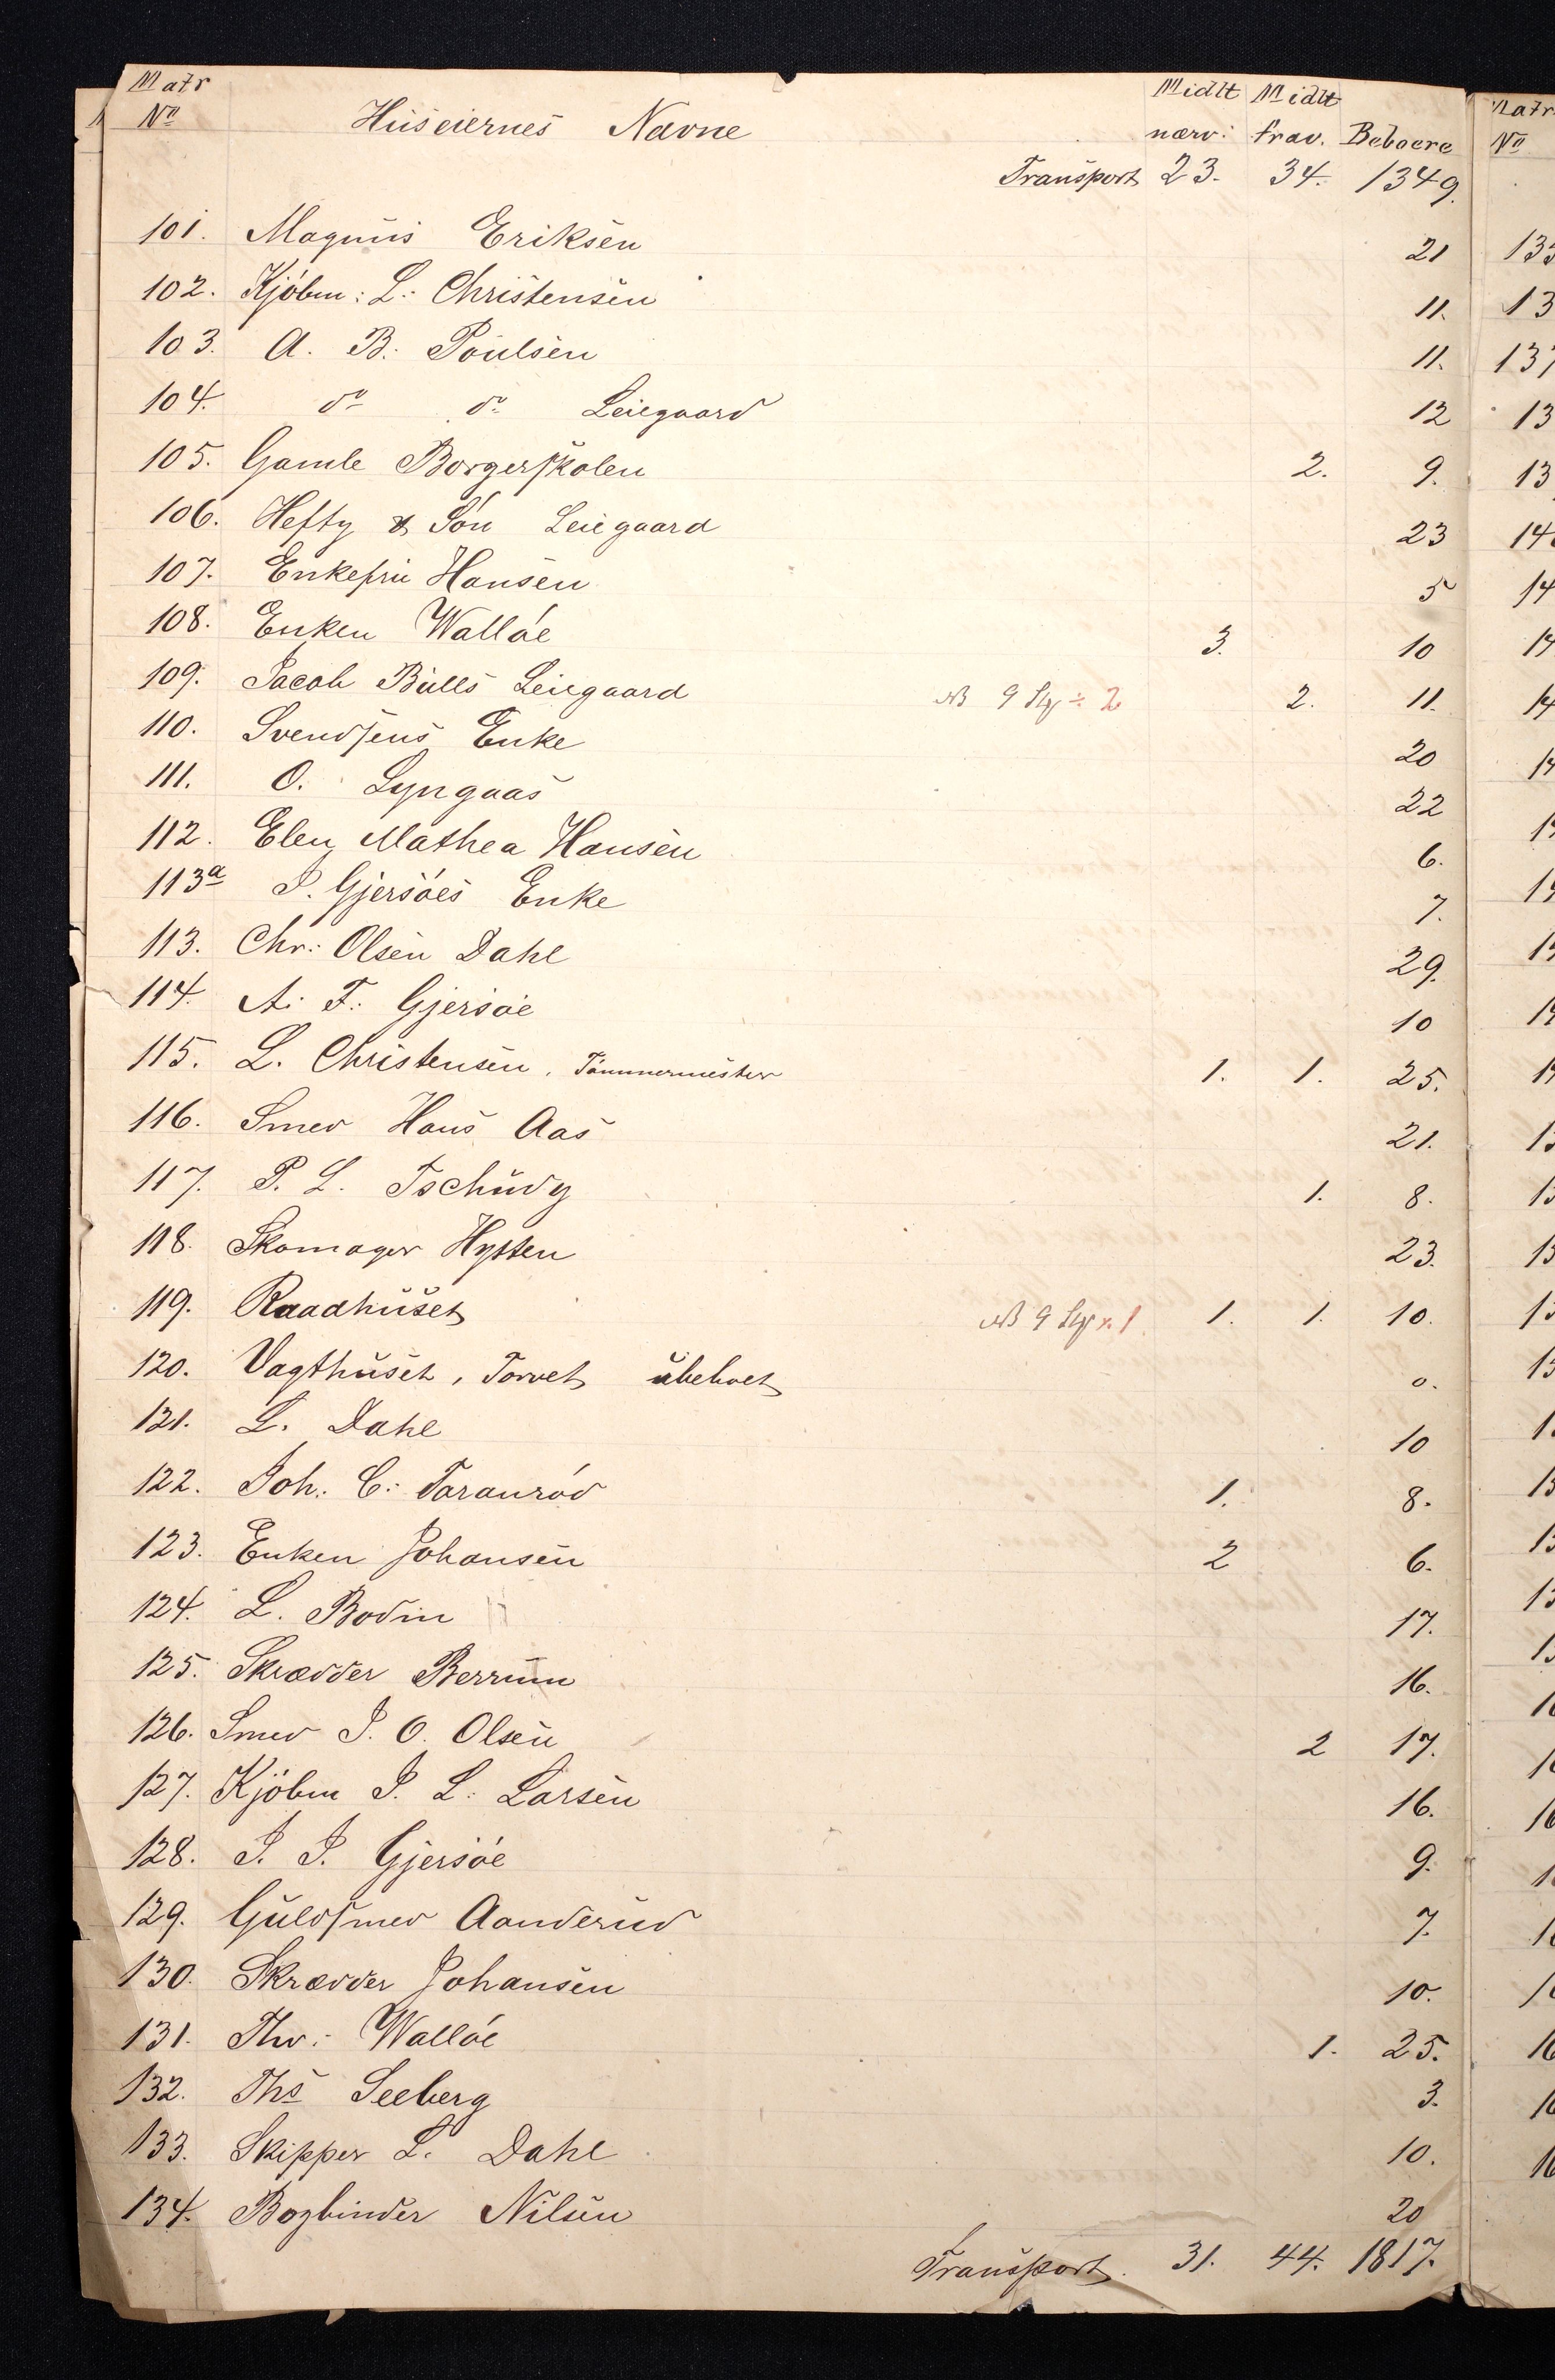 Matr Midlt Midlt
No Huseiernes Navne nærv: frav. Beboere
Transport 23. 34. 1349.
101. Magnus Eriksen 21
102. Kjóbm: L. Christensen 11.
103. A. B. Poulsen 11.
104. do do Leiegaard 12
105. Gamle Borgerskolen 2. 9.
106. Hefty & Són Leiegaard 23
107. Enkefru Hansen 5
108. Enken Wallóe 3. 10
109. Jacob Bulls Leiegaard NB 9 ÷ 2 2. 11.
110. Svendsens Enke 20
111. O. Lyngaas 22
112. Elen Mathea Hansen 6.
113a J. Gjersóes Enke 7.
113. Chr: Olsen Dahl 29.
114. A. F. Gjersóe 10
115. L. Christensen, Tómmermester 1. 1. 25.
116. Smed Hans Aas 21.
117. P. L. Tschudy 1. 8.
118. Skomager Hysten 23.
119. Raadhuset NB 9 1 1. 1. 10.
120. Vagthuset, Torvet ubeboet 0.
121. L. Dahl 10
122. Joh. C. Taranród 1. 8.
123. Enken Johansen 2 6.
124. L. Bodin 17.
125. Skrædder Berrum 16.
126. Smed J. O. Olsen 2 17.
127. Kjöbm J. L. Larsen 16.
128. J. J. Gjersóe 9.
129. Guldsmed Aanderud 7.
130. Skrædder Johansen 10.
131. Thv: Wallóe 1. 25.
132. Ths Seeberg 3.
133. Skipper L. Dahl 10.
134. Bogbinder Nilsen 20
Transport. 31. 44. 1817.